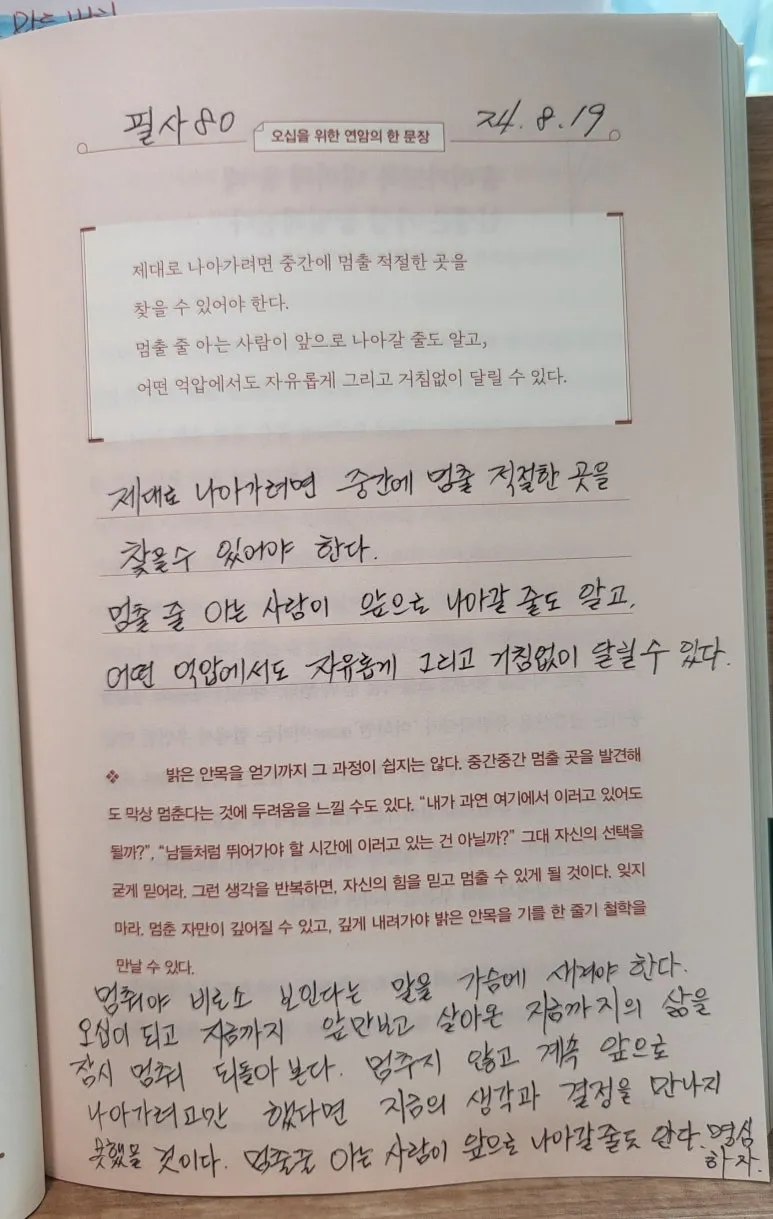 필사 80
오십을 위한 연암의 한 문장
24. 8. 19
제대로 나아가려면 중간에 멈출 적절한 곳을
찾을 수 있어야 한다.
멈출 줄 아는 사람이 앞으로 나아갈 줄도 알고,
어떤 억압에서도 자유롭게 그리고 거침없이 달릴 수 있다.
제대로 나아가려면 중간에 멈출 적절한 곳을
찾을수 있어야 한다.
멈출 줄 아는 사람이 앞으로 나아갈 줄도 알고,
어떤 억압에서도 자유롭게 그리고 거침없이 달릴 수 있다.
❖ 밝은 안목을 얻기까지 그 과정이 쉽지는 않다. 중간중간 멈출 곳을 발견해
도 막상 멈춘다는 것에 두려움을 느낄 수도 있다. “내가 과연 여기에서 이러고 있어도
될까?”, “남들처럼 뛰어가야 할 시간에 이러고 있는 건 아닐까?” 그대 자신의 선택을
굳게 믿어라. 그런 생각을 반복하면, 자신의 힘을 믿고 멈출 수 있게 될 것이다. 잊지
마라, 멈춘 자만이 깊어질 수 있고, 깊게 내려가야 밝은 안목을 기를 한 줄기 철학을
만날 수 있다.
멈춰야 비로소 보인다는 말을 가슴에 새겨야 한다.
오십이 되고 지금까지 앞만보고 살아온 지금까지의 삶을
잠시 멈춰 되돌아 본다. 멈추지 않고 계속 앞으로
나아가려고만 했다면 지금의 생각과 결정을 만나지
못했을 것이다. 멈출줄 아는 사람이 앞으로 나아갈줄도 안다. 명심
하자.